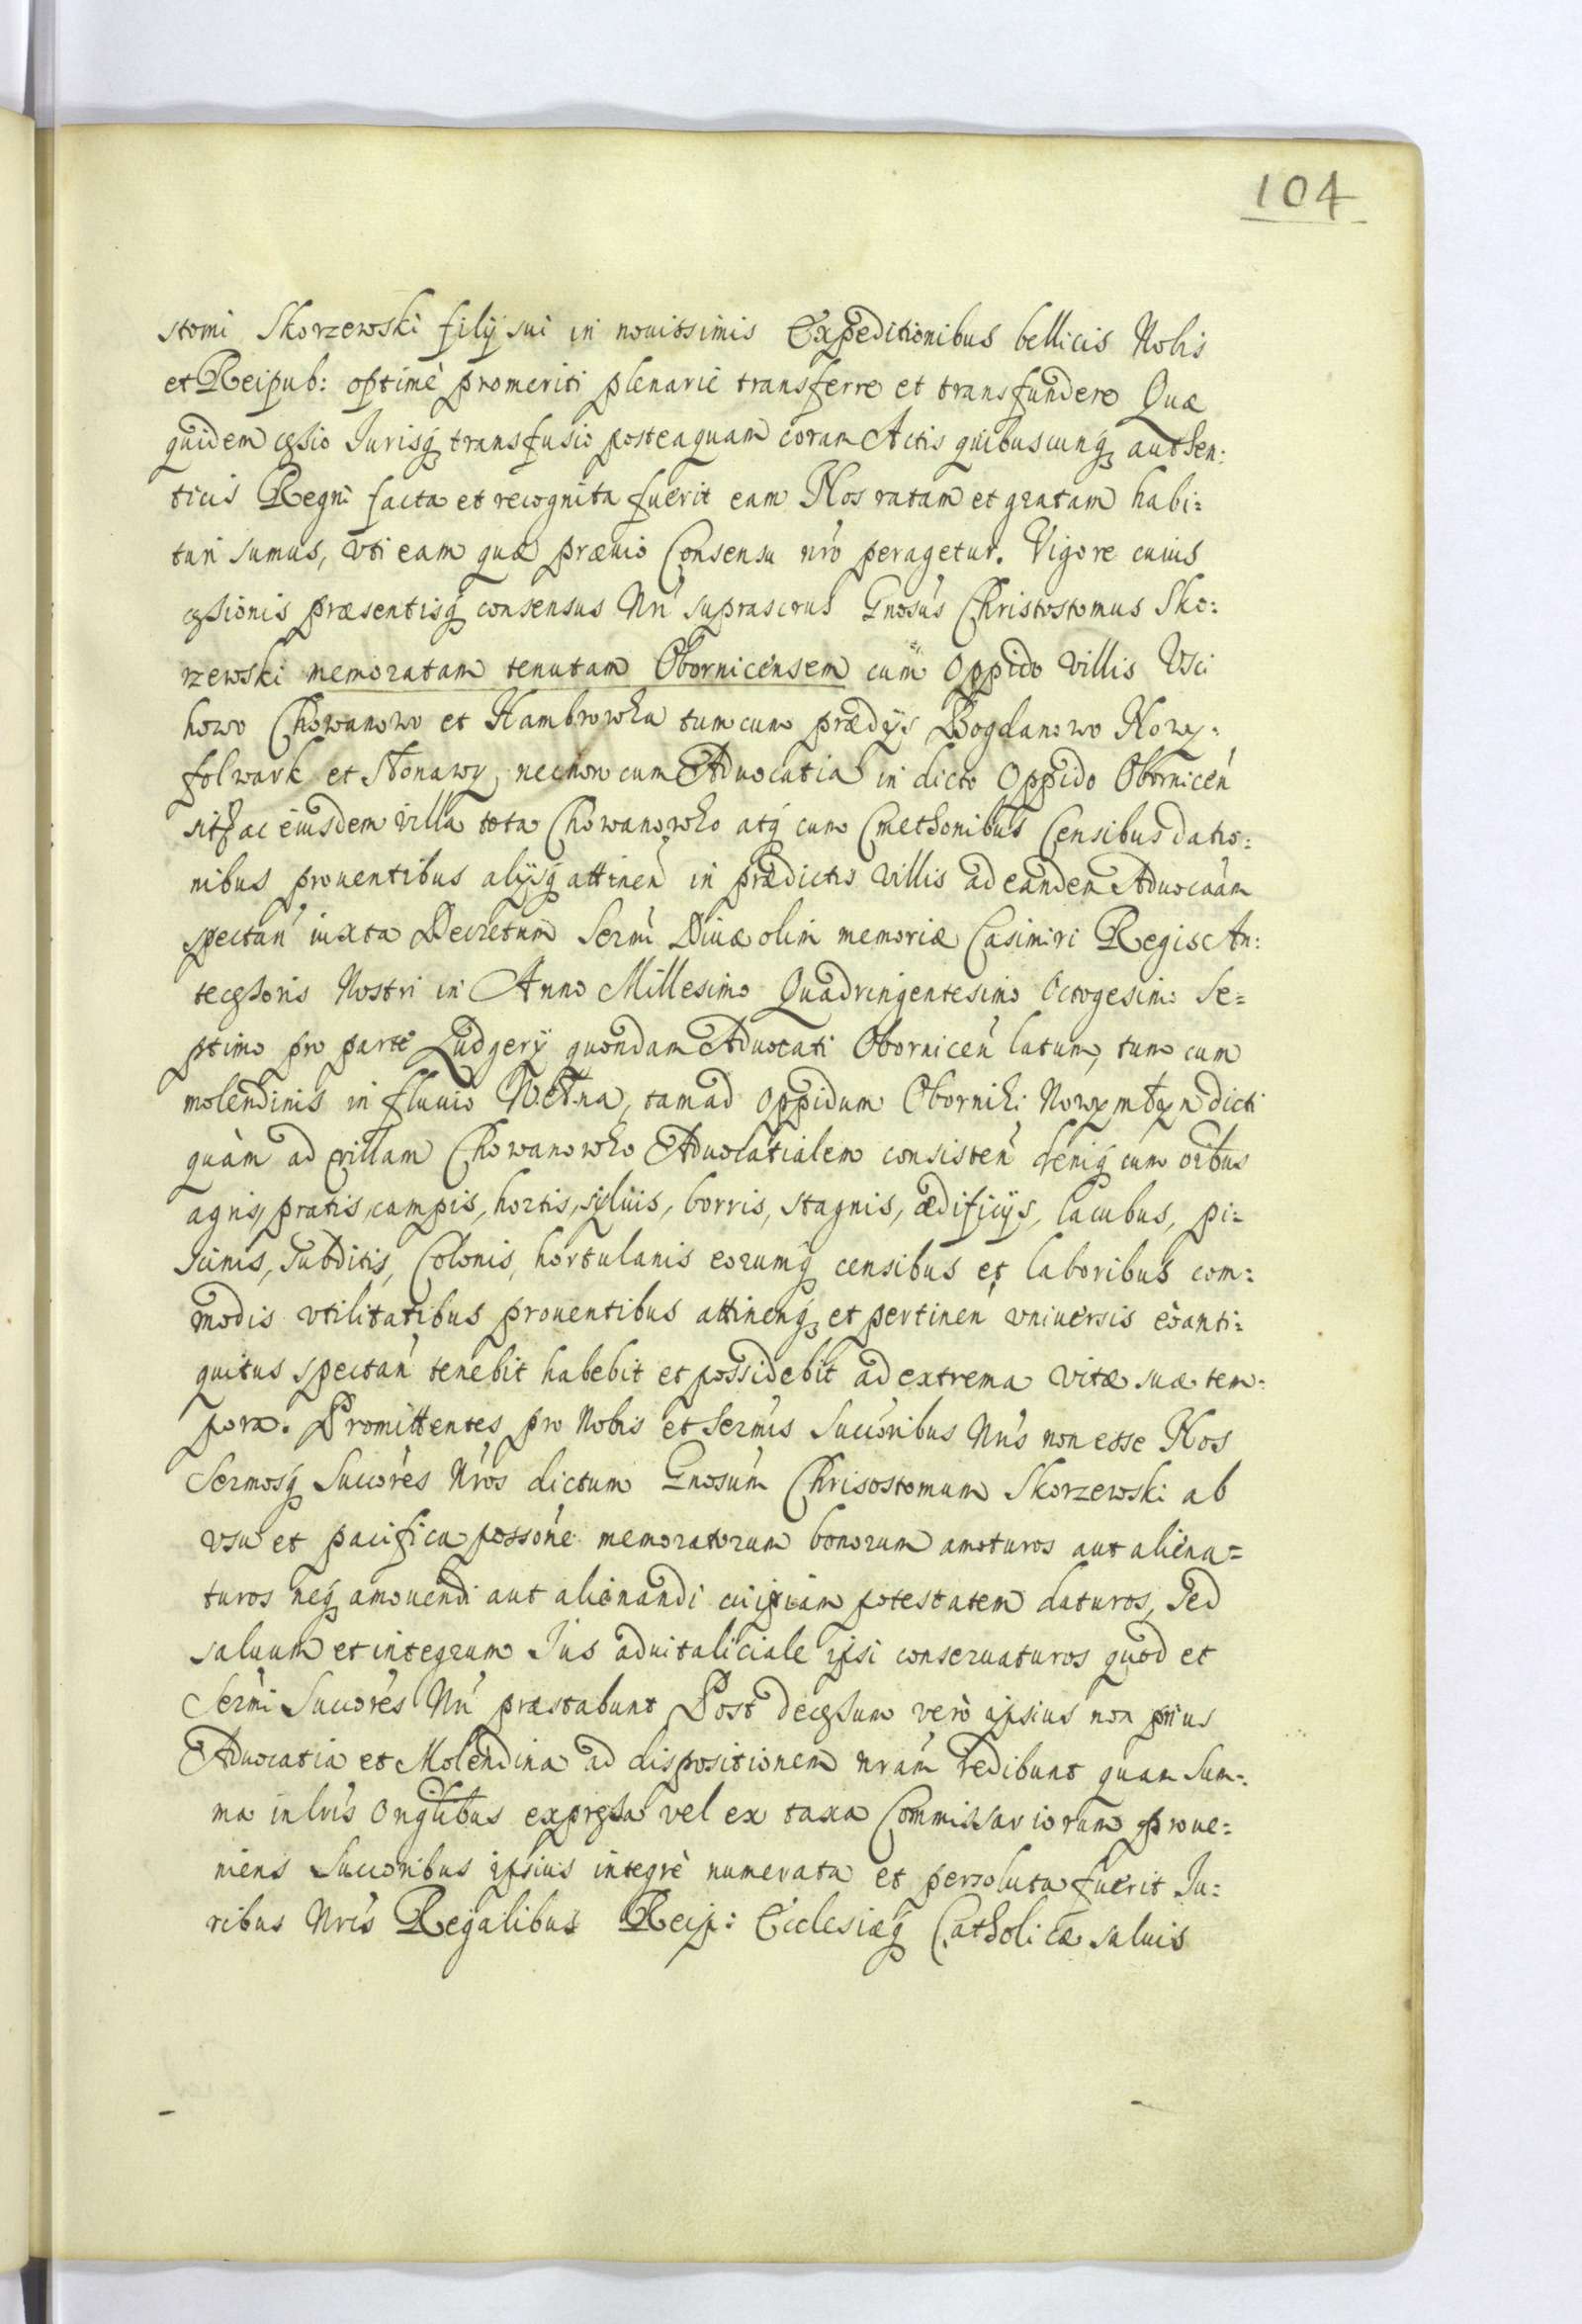 104
stomi Skorzewski filij sui in nouissimis Expeditionibus bellicis Nobis
et Reipub: optimè promeriti plenarie transferre et transfundere Quæ
quidem cessio Jurisq transfusio posteaquam coram Actis quibuscunq authen:
ticis Regni facta et recognita fuerit eam Nos ratam et gratam habi:
turi sumus, vti eam quæ præuio Consensu nr̄o peragetur. Vigore cuius
cessionis præsentisq consensus Nr̄i suprascrus Gnosus Christostomus Sko:
rzewski memoratam tenutam Obornicensem cum Oppido villis Vsci
kowo Chowanowo et Kambrowka tum cum prædijs Bogdanowo Nowy:
folwark et Stonawy, necnon cum Aduocatia in dicto Oppido Obornicen
sit ac eiusdem villa tota Chowanowko atq cum Cmethonibus Censibus datio:
nibus prouentibus alijsq attinen in prædictis villis ad eandem Aduocaam
spectan iuxta Decretum Serm̄i Diuæ olim memoriæ Casimiri Regis An:
tecessoris Nostri in Anno Millesimo Quadringentesimo Octogesimo Se=
ptimo pro parte Ludgerij quondam Aduocati Obornicen latum, tum cum
molendinis in fluuio Wełna, tam ad oppidum Oborniki Nowy młyn dicti
quàm ad villam Chowanowko Aduocatialem consisten deniq cum oibus
agris, pratis, campis, hortis, syluis, borris, stagnis, ædificijs, lacubus, pi:
scinis, subditis, Colonis, hortulanis eorumq censibus et laboribus com:
modis vtilitatibus prouentibus attinenq et pertinen vniuersis eo anti:
quitus spectan tenebit habebit et possidebit ad extrema vitæ suæ tem:
pora. Promittentes pro Nobis et Serm̄is Succoribus Nr̄is non esse Nos
Sermosq Succores Nr̄os dictum Gnosum Chrisostomum Skorzewski ab
vsu et pacifica possone memoratorum bonorum amoturos aut aliena=
turos neq amouendi aut alienandi cuipiam potestatem daturos, sed
saluum et integrum Jus aduitaliciale ipsi conseruaturos quod et
Serm̄i Succores Nr̄i præstabunt Post decessum verò ipsius non prius
Aduocatia et Molendina ad dispositionem nr̄am redibunt quam Sum:
ma in lr̄is Onglibus expressa vel ex taxa Commissariorum proue:
niens Succoribus ipsius integrè numerata et persoluta fuerit Ju:
ribus Nr̄is Regalibus Reip: Ecclesiæq Catholicæ saluis